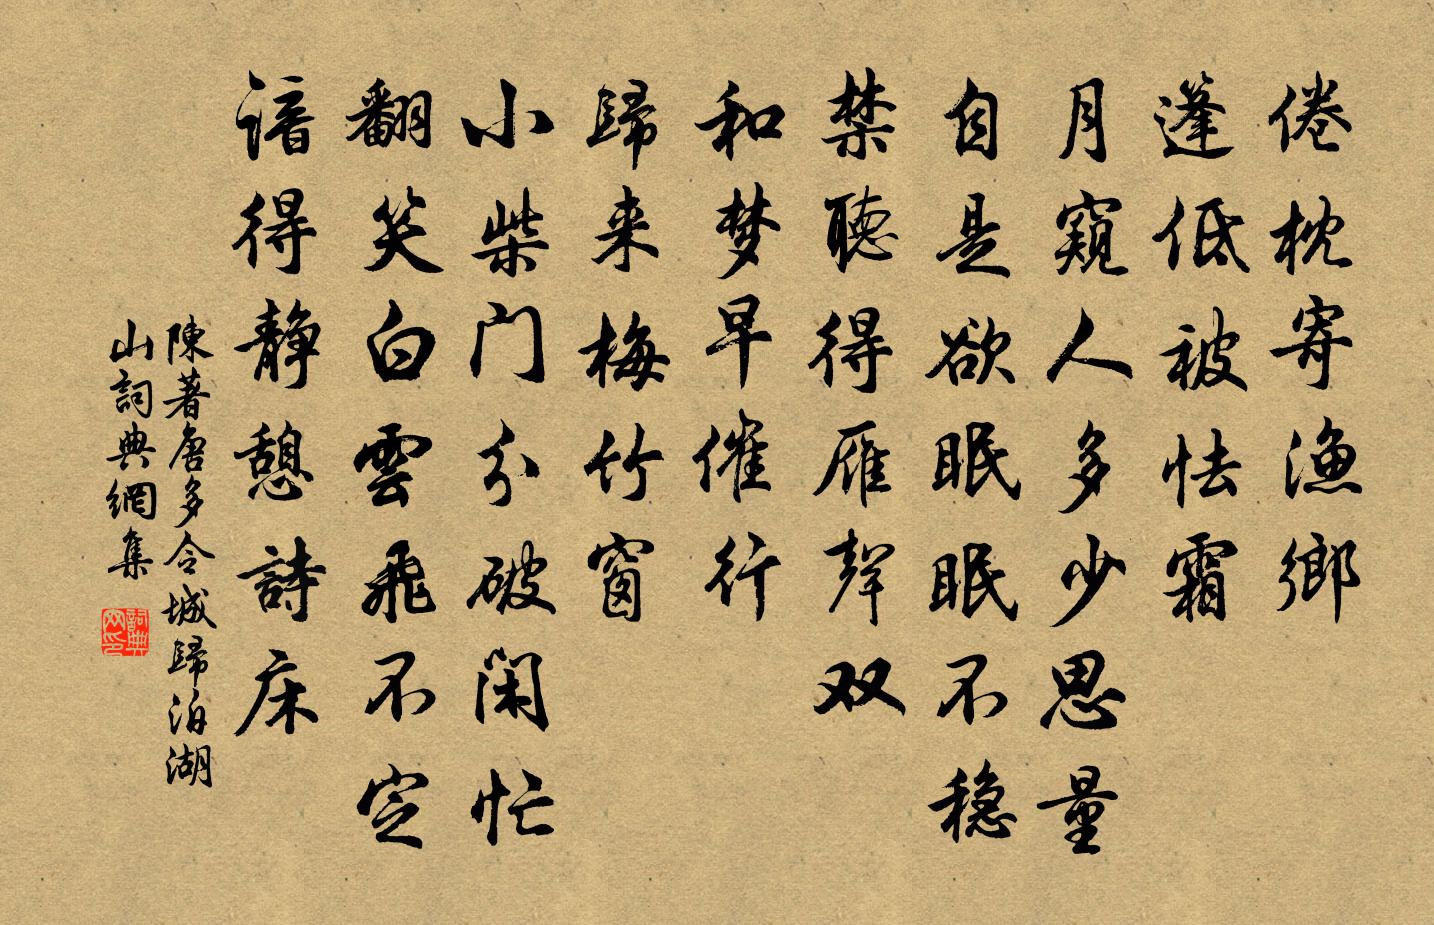 倦枕寄漁鄉
蓬低被怯霜
月窺人多少思量
自是欲眠眠不穩
禁聽得雁聲双
和梦早催行
歸来梅竹窗
小柴门分破闲忙
翻笑白雲飛不定
諳得靜憩詩床
陳著唐多令城歸泊湖
山詞典網集
詞典
网印